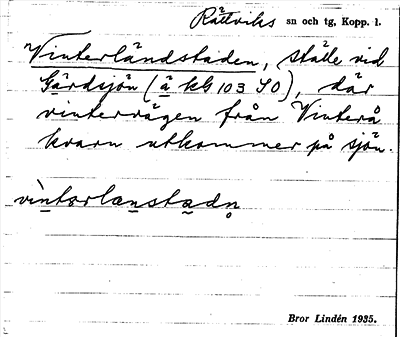 Rättviks sn och tg, Kopp. l.
"Vinterländstaden, ställe vid
Gärdsjön (å kb 103 SO), där
vintervägen från Vinterå
kvarn utkommer på sjön.
vìntərlænstadn̥
Bror Lindén 1935.